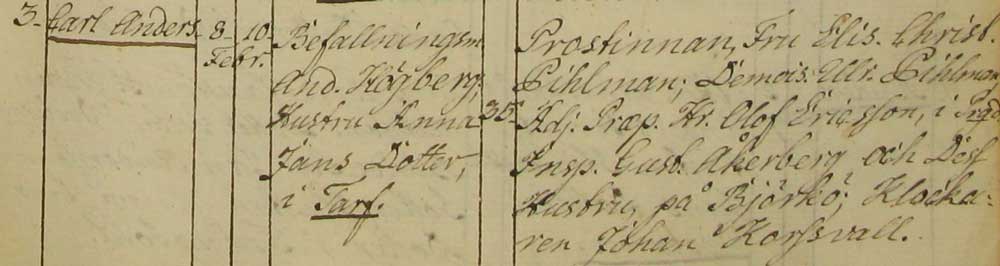 3. Carl Anders. 8. 10. Befallningsm. Prostinnan, Fru Elis. Christ.
Febr. And. Högberg; Pihlman; Demois. Ulr. Pihlman,
Hustru Anna 35 Adj. Præp. Hr. Olof Ericsson, i
Jans Dotter, Insp. Gust. Åkerberg och Dess
i Tarf. Hustru, på Björkö; Klocka-
ren Johan Korssvall.